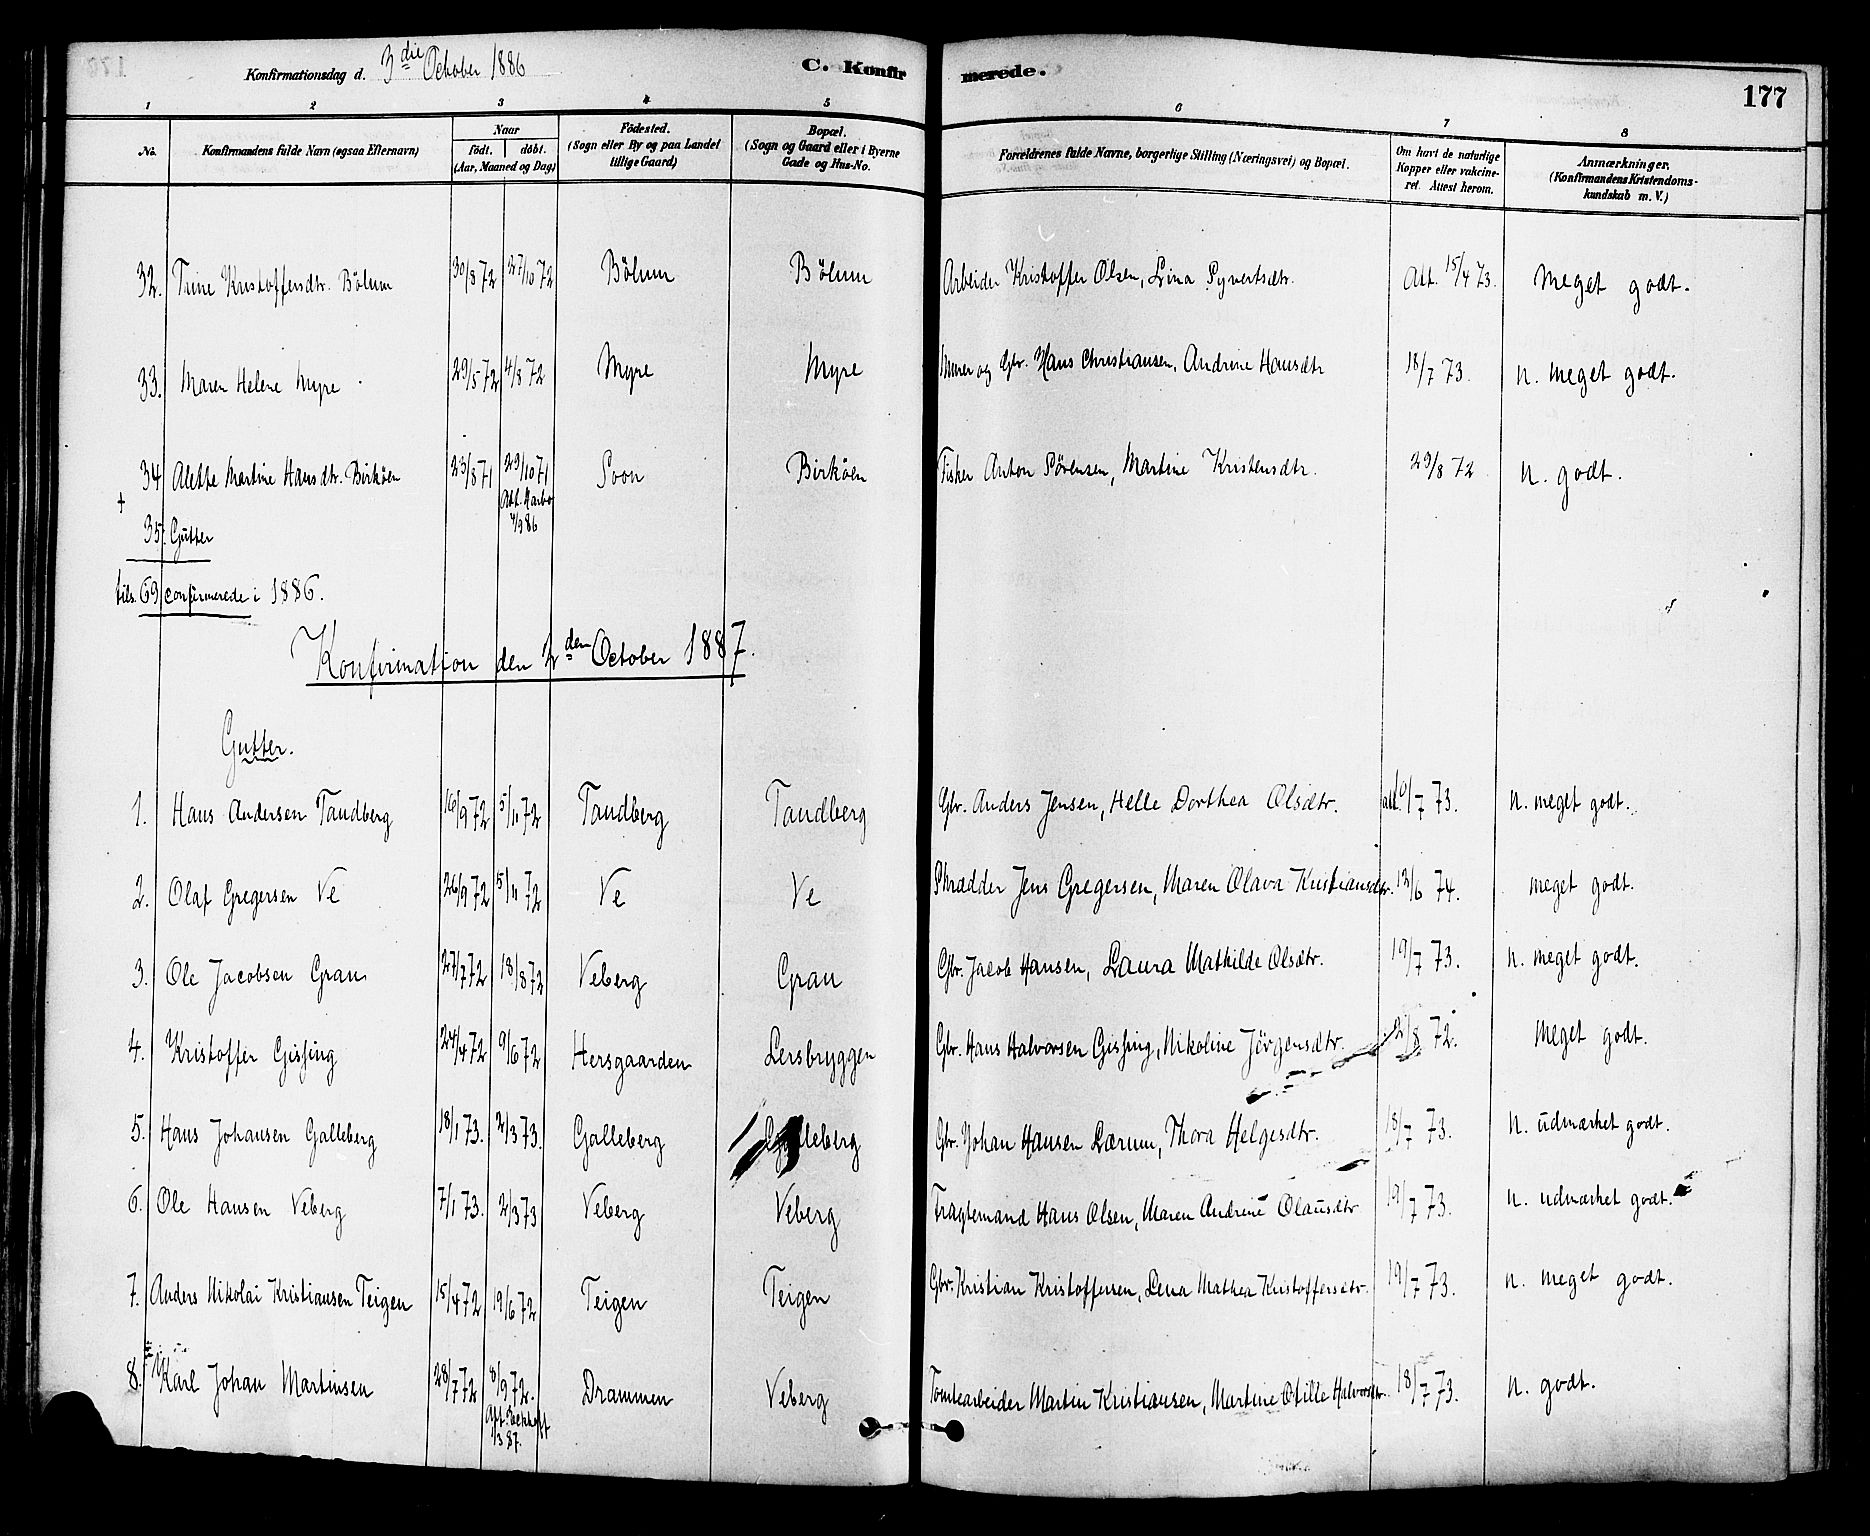 Konfirmationsdag d. 3die October 1886 C. Konfirmerede. 177
1 2 3 4 5 6 7 8
No. Konfirmandens fulde Navn (ogsaa Efternavn) Naar født. døbt. (Aar, Maaned og Dag) Fødested. (Sogn eller By og paa Landet tillige Gaard) Bopæl. (Sogn og Gaard eller i Byerne Gade og Hus-No. Forældrenes fulde Navne, borgerlige Stilling (Næringsvei) og Bopæl. Om havt de naturlige Kopper eller vakcineret. Attest herom. Anmærkninger. (Konfirmandens Kristendomskundskab m. V.)
32. Trine Kristoffersdtr. Bølum 30/8 72 27/10 72 Bølum Bølum Arbeider Kristoffer Olsen, Lina Syvertsdtr. Att. 15/4 73. Meget godt.
33. Maren Helene Myre 29/5 72 4/8 72 Myre Myre Murer og Gbr. Hans Christiansen, Andrine Hansdtr 18/7 73. N. meget godt.
34 Alette Martine Hansdtr. Birkøen 23/8 71 29/10 71 Soon Birkøen Fisker Anton Sørensen, Martine Kristensdtr. 29/8 72 N. godt.
Att. Harbo 4/9 86
+
35. Gutter
tils. 69 confirmerede i 1886.
Konfirmation den 2den October 1887.
Gutter.
1. Hans Andersen Tandberg 16/9 72 5/11 72 Tandberg Tandberg Gbr. Anders Jensen, Helle Dorthea Olsdtr. att. /7 73. N. meget godt.
2. Olaf Gregersen Ve 26/9 72 5/11 72 Ve Ve Skrædder Jens Gregersen, Maren Olava Kristiansdtr. 12/6 74. meget godt.
3. Ole Jacobsen Gran 27/7 72 18/8 72 Veberg Gran Gbr. Jacob Hansen, Laura Mathilde Olsdtr. 19/7 73. N. meget godt.
4. Kristoffer Gissing 24/4 72 9/6 72 Hersgaarden Lersbryggen Gbr. Hans Halvorsen Gissing, Nikoline Jørgensdtr. 21/8 72. Meget godt.
5. Hans Johansen Galleberg 18/1 73. 2/3 73. Galleberg Galleberg Gbr. Johan Hansen Lærum, Thora Helgesdtr. 18/7 73. N. udmærket godt.
6. Ole Hansen Veberg 7/1 73. 2/3 73 Veberg Veberg Fragtemand Hans Olsen, Maren Andrine Olausdtr 19/7 73. N. udmærket godt.
7. Anders Nikolai Kristiansen Teigen 15/4 72 19/6 72 Teigen Teigen Gbr. Kristian Kristoffersen, Lena Mathea Kristoffersdtr. 19/7 73. N. meget godt.
8. Karl Johan Martinsen 28/7 72 8/9 72. Drammen Veberg Tomtearbeider Martin Kristiansen, Martine Otilie Halvorsdtr. 18/7 73. N. godt.
/3 87.